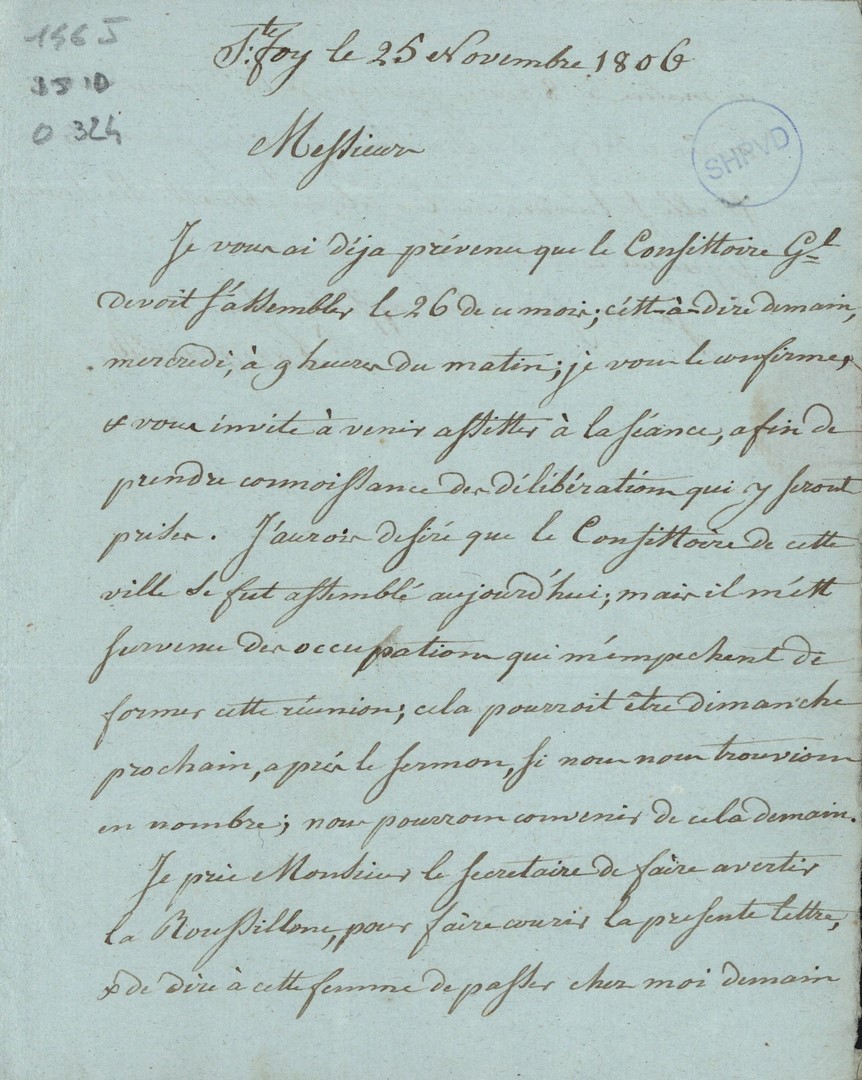 1565
1510
O 324
Ste. foy le 25 Novembre 1806
SHPVD
Messieurs
Je vous ai déja prévenu que le Consistoire Gl
devoit s'assembler le 26 de ce mois; c'est-à-dire demain,
mercredi, à 9 heures du matin; je vous le confirme,
& vous invite à venir assister à la séance, afin de
prendre connoissance des délibérations qui y seront
prises. J'aurois desiré que le Consistoire de cette
ville se fut assemblé aujourd'hui; mais il m'est
survenu des occupations qui m'empechent de
former cette réunion; cela pourroit être dimanche
prochain, après le sermon, si nous nous trouvions
en nombre; nous pourrons convenir de cela demain.
Je prie Monsieur le secretaire de faire avertir
la Roussillone, pour faire courir la presente lettre,
& de dire à cette femme de passer chez moi demain